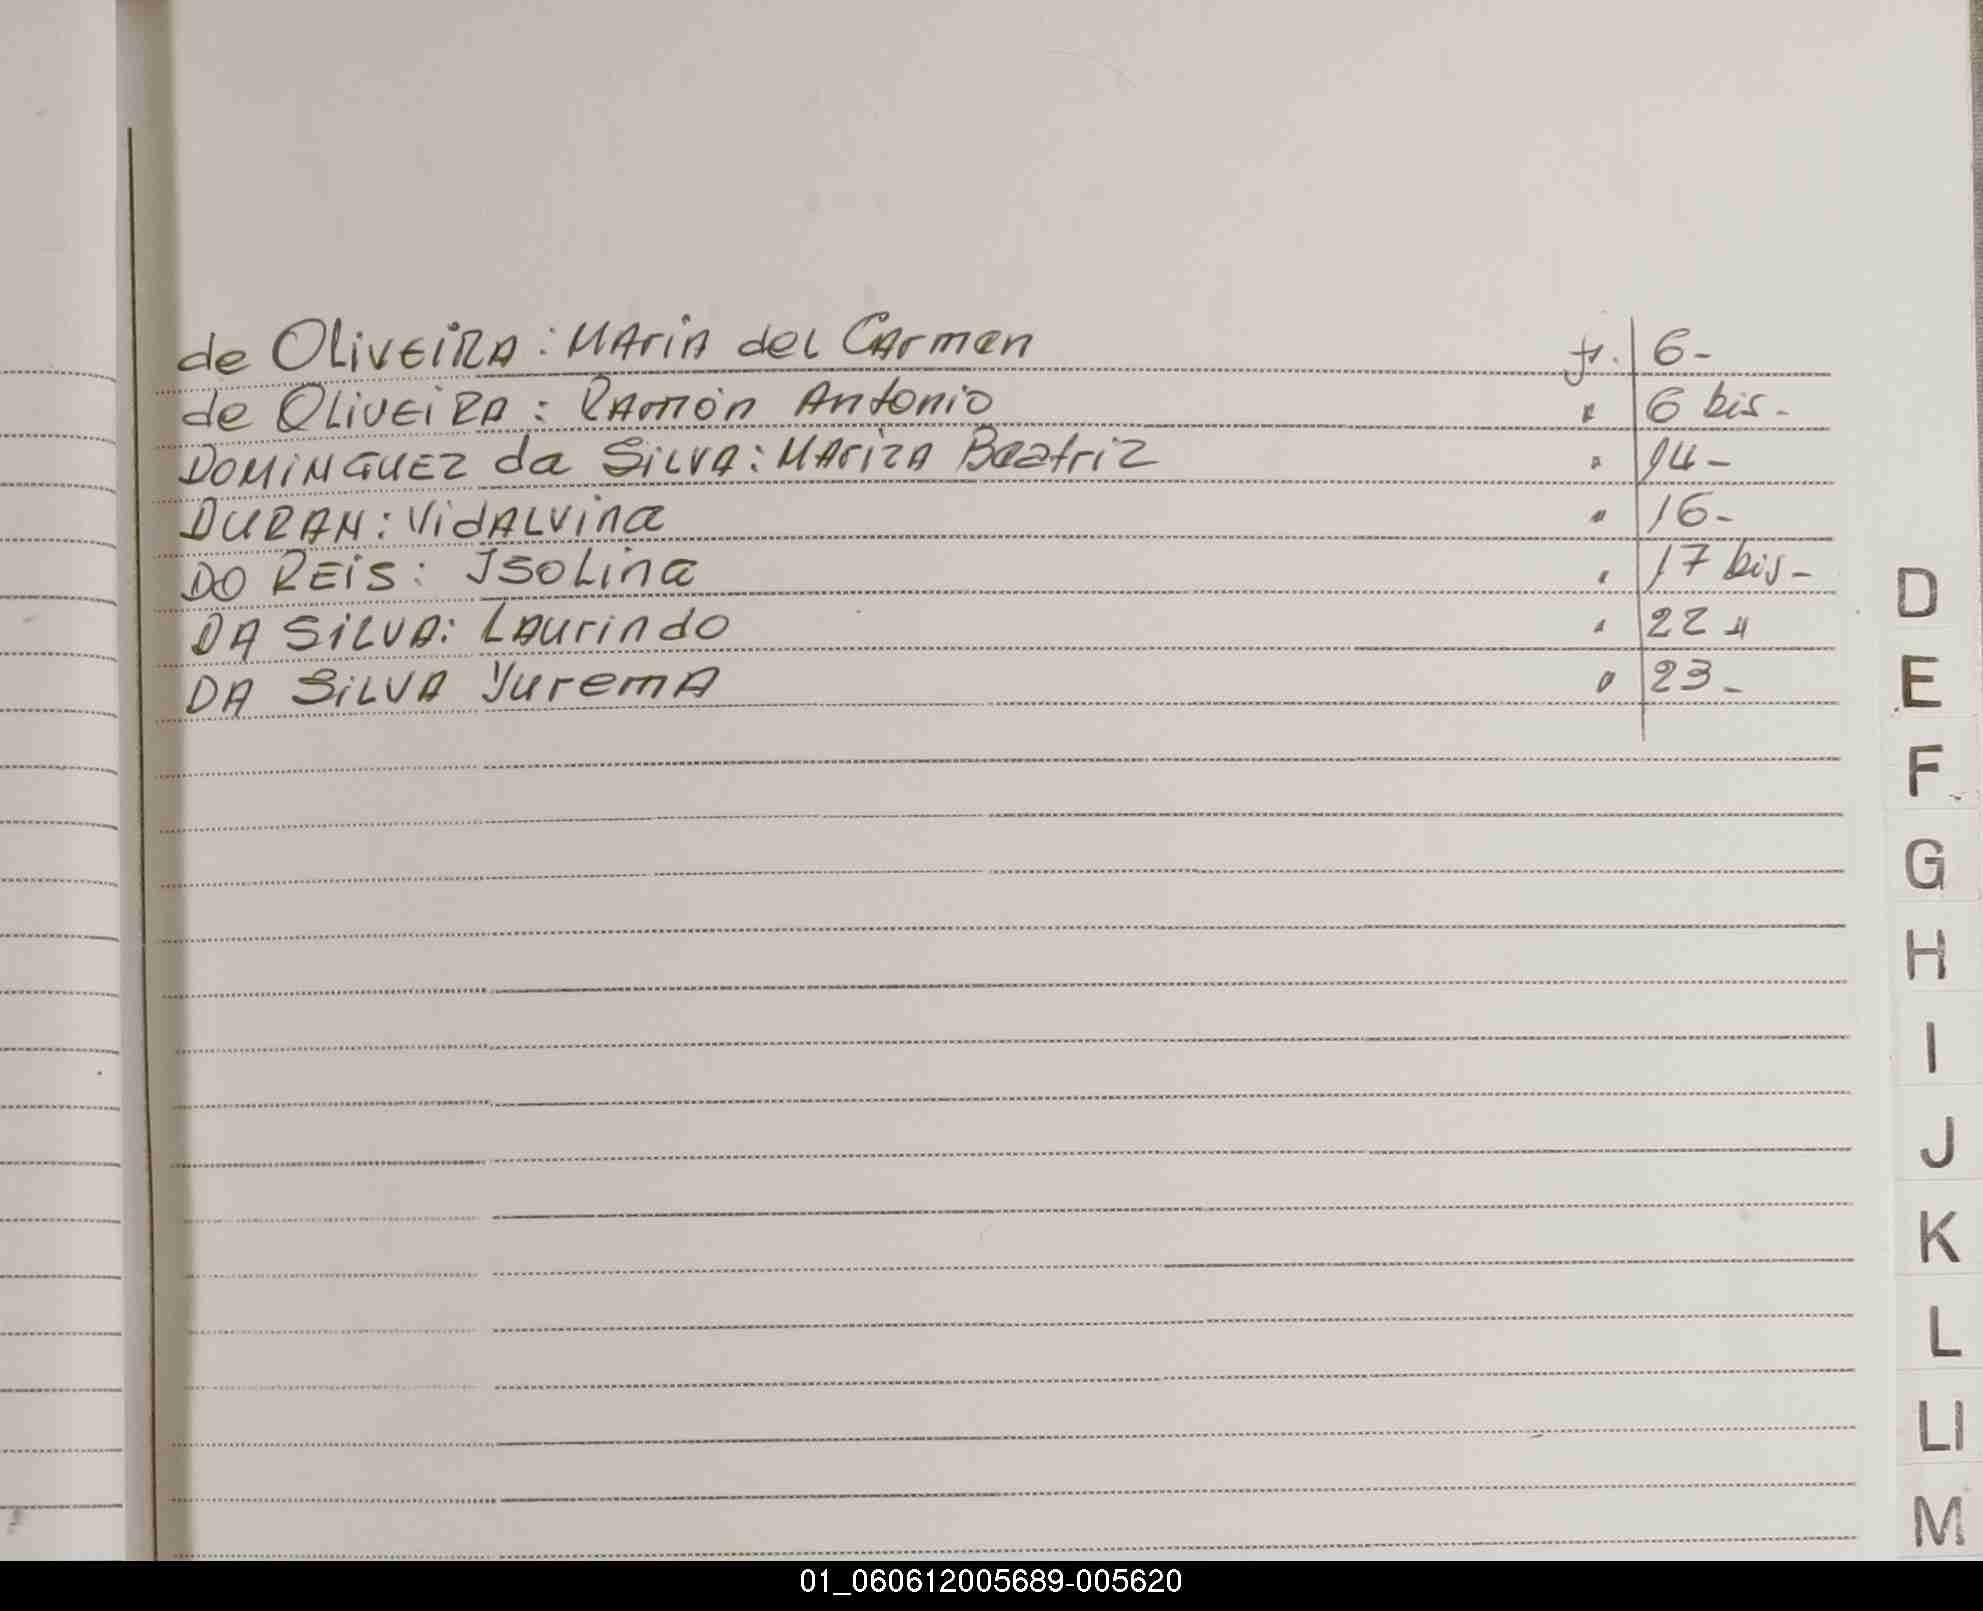 de OLiVEiRA: MAriA deL CArmen fs. 6-
de OLiVEiRA: RAmón Antonio " 6 bis-
DOMiNGUEZ da SiLVA: MArizA Beatriz " 14-
DURAN: VidALvina " 16-
DO REiS: ISoLina " 17 bis-
DA SiLVA: LAurindo " 22
DA SiLVA YuremA " 23-
D
E
F
G
H
I
J
K
L
Ll
M
01_060612005689-005620